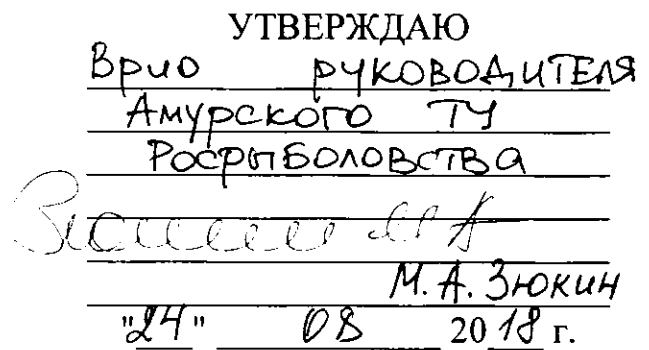 УТВЕРЖДАЮ
Врио руководителя
Амурского ТУ
Росрыболовства
М. А. Зюкин
"24" 08 2018 г.